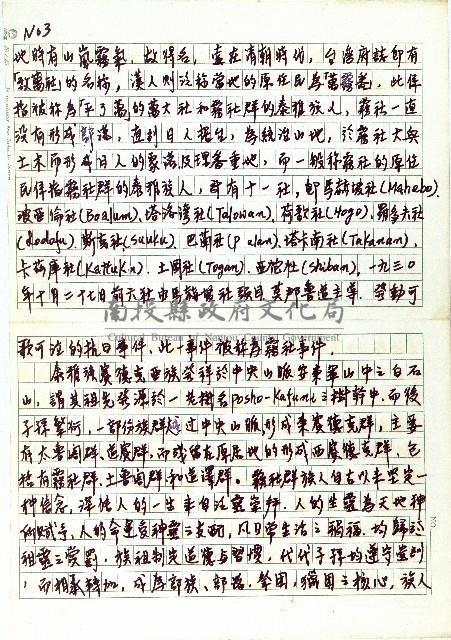 No3
地時有山嵐霧氣,故得名,遠在清朝時代,台灣府誌即有
「致霧社」的名稱,漢人則泛稱當地的原住民為「萬霧番」,此係
指被稱為「平了萬」的萬大社和霧社群的泰雅族人,霧社一直
沒有形成部落,直到日人據台,為統治山地,於霧社大興
土木而形成日人的聚落及理番重地,而一般稱霧社的原住
民係指霧社群的泰雅族人,群有十一社,即馬赫坡社(Mahebo).
波亞倫社(Boalum),塔洛灣社(Talowan),荷歌社(Hogo),羅多夫社
(Rodofu),斯庫社(suuku),巴蘭社(Palan),塔卡南社(Takanan),
卡茲庫社(Kattuku),土岡社(Togan),西袍社(Shibam),一九三〇
年十月二十七日前六社由馬赫坡社頭目莫那魯道主導,発動可
南投縣政府文化局
Cultural Bureau of Nantou County Government
歌可泣的抗日事件,此一事件被稱為霧社事件.
泰雅族賽德克亞族發祥於中央山脈安東軍山中之白石
山,謂其祖先發源於一老樹名posho-Kafuni之樹幹中,而後
子孫繁衍,一部份族群越過中央山脈,形成東賽德克群,主要
有太魯閣群、道賽群,而或留在原居地的形成西賽德克群,包
括有霧社群、土魯閣群和道澤群. 霧社群族人自古以來堅定一
種信念,深信人的一生來自泛靈崇拜,人的生靈為天地神
所賦予,人的命運受神靈之支配,凡日常生活之禍福,均歸於
祖靈之愛罰,族祖制定道德與習慣,代代子孫均遵守靈訓
,而相暴[...]加,成為部族、部落、祭團、獵團之核心,族人